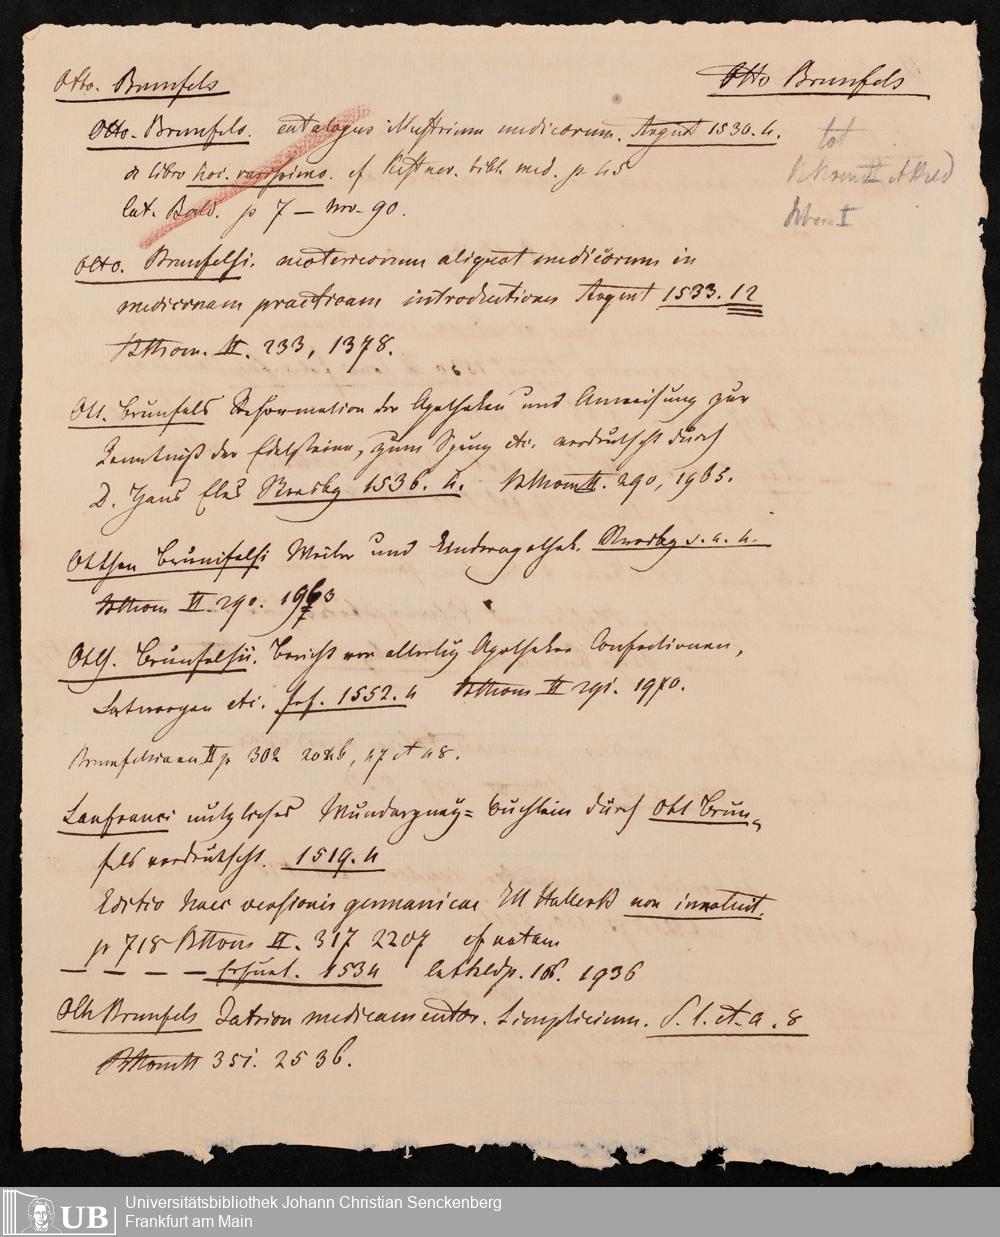 Otto. Brunfels
Otto Brunfels
Otto. Brunfels. catalogus illustrium medicorum. Argent 1530. 4.
tot
d libro hoc. rarissimo. cf Kestner. bibl. med. p 45
Cat. Bald. p 7 — nro. 90.
Otto. Brunfelsi. neotericorum aliquot medicorum in
medicinam practicam introductiones Argent 1533. 12
BThom. II. 233, 1378.
Ott. Brunfels Reformation der Apotheken und Anweisung zur
Kenntniß der Edelsteine, zum etc. verdeutscht durch
D. Hans Strasbg 1536. 4. BThom II. 290, 1965.
Otthen Brunifelsi Weiber und Kinderapothek. Strasbg s. a. 4.
BThom II. 290. 1963
Oth. Brunfelsii. Bericht von allerley Apotheker Confectionen,
Latwergen etc. 1552. 4 BThom II 291. 1970.
Brunfelsiana II p 302 2046, 47 et 48.
Lanfranci nützliches Wundarzney= büchlein durch Ott Brun-
fels verdeutscht. 1519. 4
Editio haec versionis germanicae Ill Hallero non innotuit.
p 718 BThom II. 317 2207 cf notam
— — — — Erfurt. 1534 p. 1936
Oth Brunfels Iatrion medicamentor. Simplicium. S. l. et. a. 8
BThom II 351. 2536.
Universitätsbibliothek Johann Christian Senckenberg
Frankfurt am Main
UB